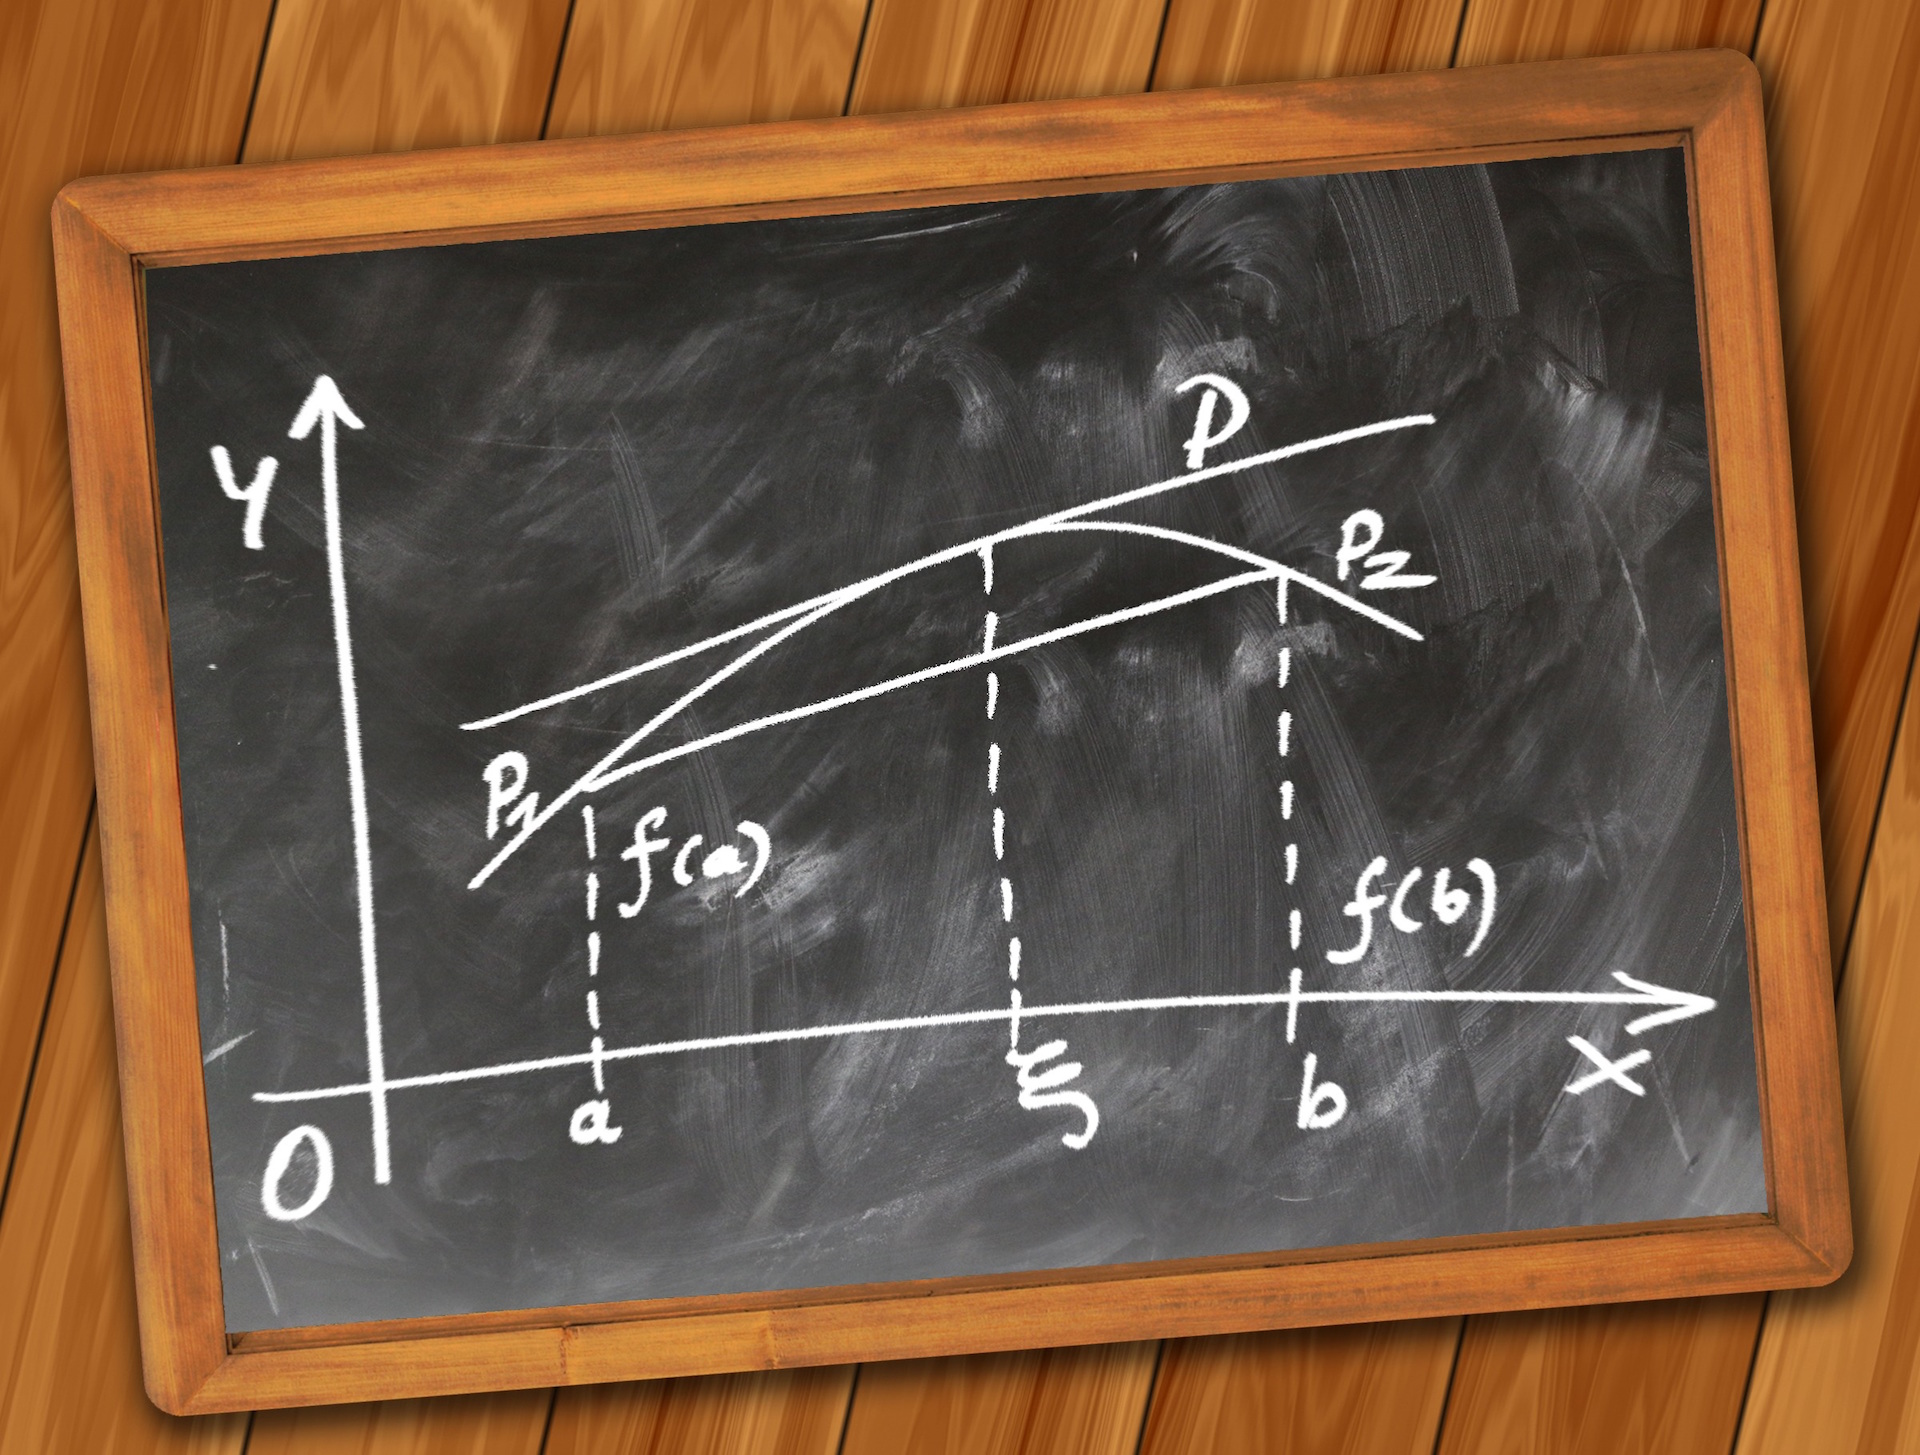 y
P
P2
P1
f(a)
f(b)
0
a
ξ
b
x